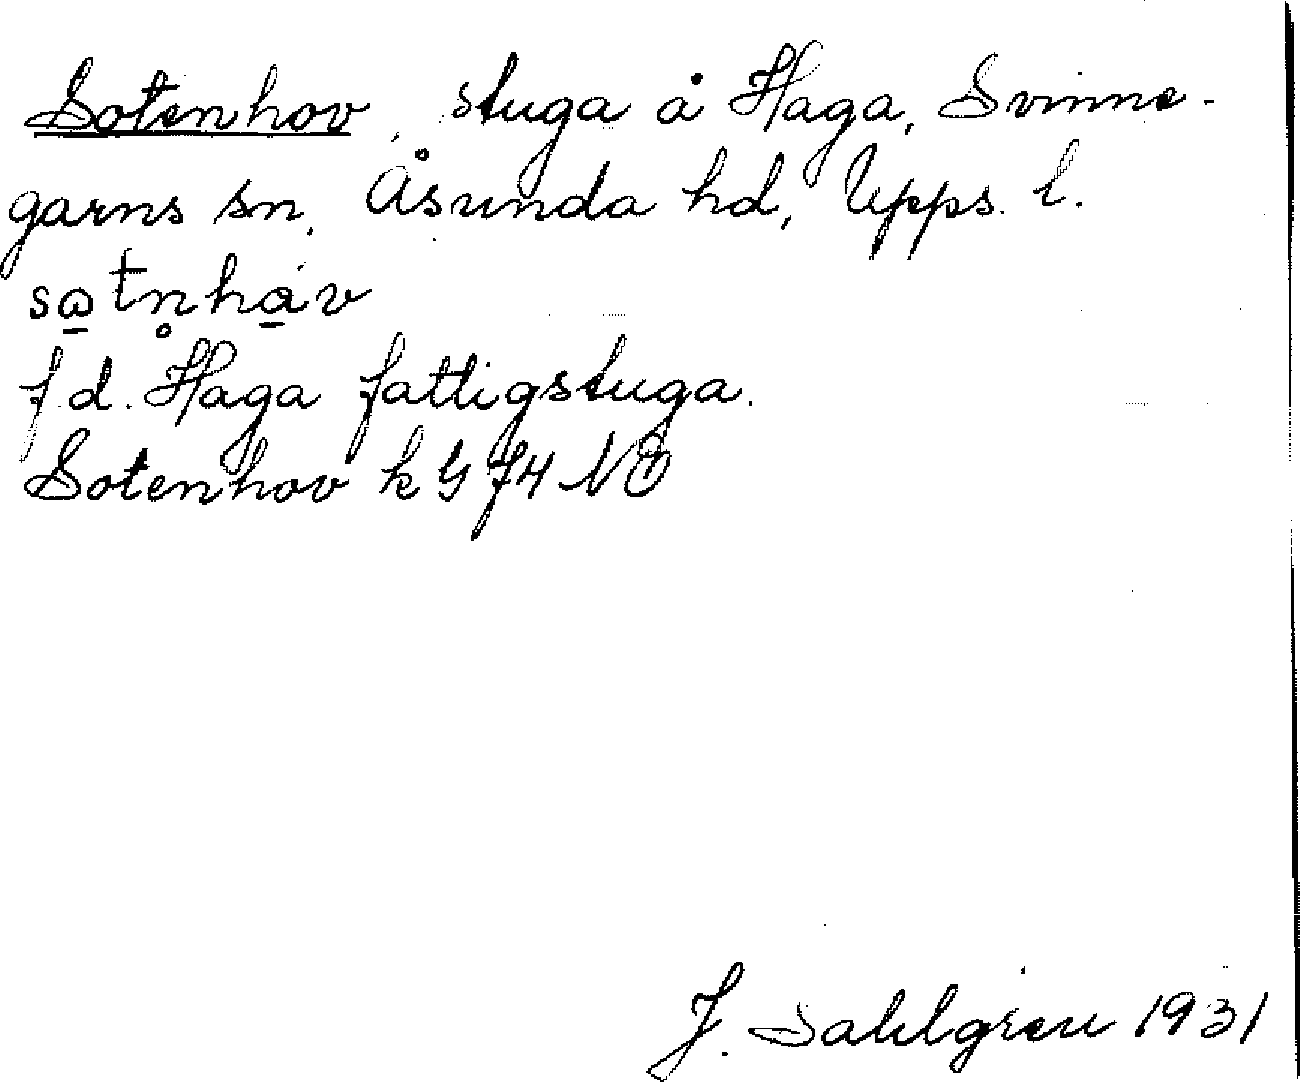 Sotenhov, stuga å Haga, Svinne-
garns sn, Åsunda hd, Upps. l.
f.d. Haga fattigstuga.
Sotenhov k G 74 NÖ
J. Sahlgren 1931